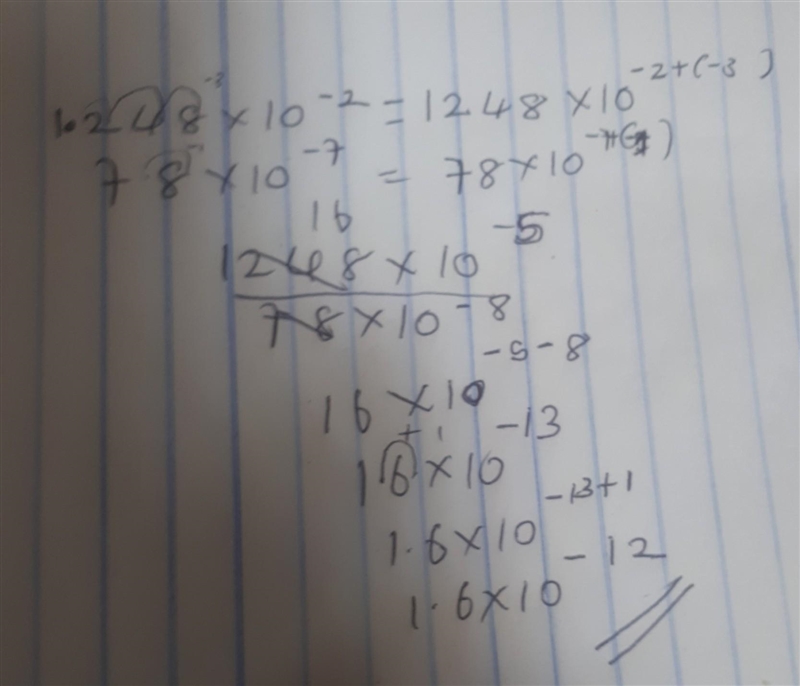 1.248 -3 × 10 -2 = 1248 × 10 -2+(-3)
7 8 - × 10 -7 = 78 × 10
16 -5
1248 × 10
78 × 10 -8
-5-8
16 × 10
+1 -13
16 × 10
-13+1
1.6 × 10
-12
1.6 × 10